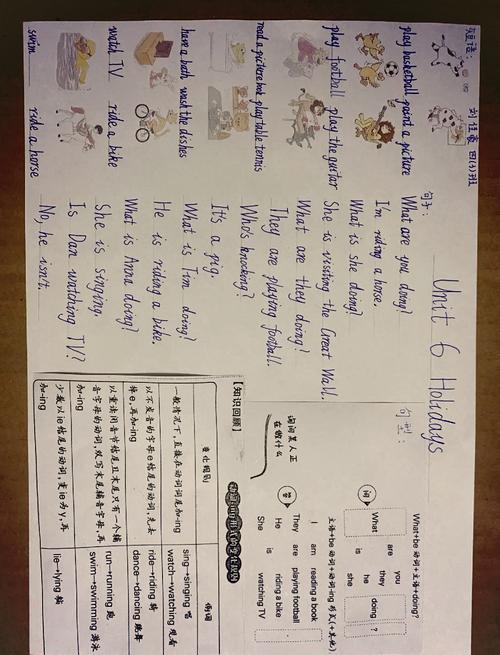 Unit 6 Holidays
短语:
play basketball paint a picture
play football play the guitar
read a picture book play table tennis
have a bath wash the dishes
watch TV ride a bike
swim ride a horse
句子:
What are you doing?
I'm riding a horse.
What is she doing?
She is visiting the Great Wall.
What are they doing?
They are playing football.
Who's knocking?
It's a pig.
What is Tim doing?
He is riding a bike.
What is Anna doing?
She is singing.
Is Dan watching TV?
No, he isn't.
句型:
What+be 动词+主语+doing?
问
What are you doing ?
they
is he
she
询问某人正
在做什么
答
主语+be 动词+动词-ing 形式(+其他)
I am reading a book
They are playing football
He is riding a bike
She watching TV
.
【知识回顾】
变化规则 例词
一般情况下,直接在动词尾加-ing sing→singing 唱
watch→watching 观看
以不发音的字母e结尾的动词,先去 ride→riding 骑
掉e,再加-ing dance→dancing 跳舞
以重读闭音节结尾且末尾只有一个辅 run→running 跑
音字母的动词,双写末尾辅音字母,再 swim→swimming 游泳
加-ing
少数以ie结尾的动词,变ie为y,再 lie→lying 躺
加-ing